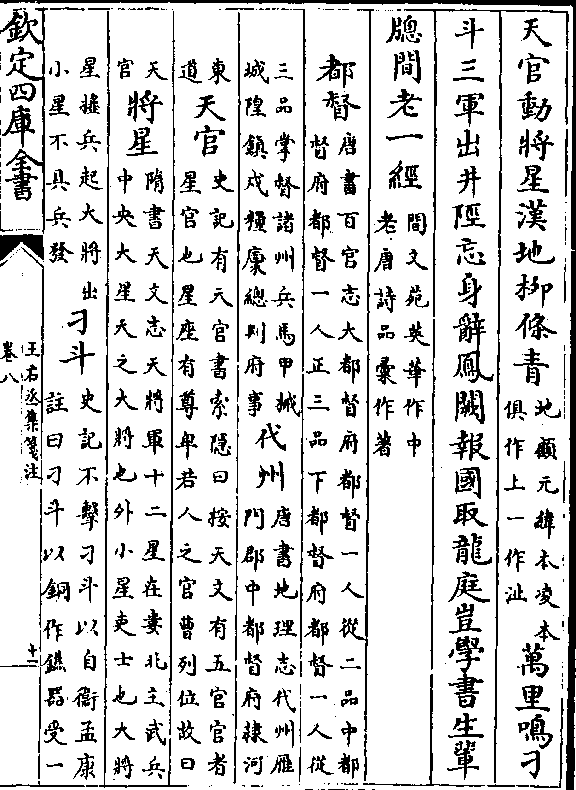 天官動將星漢地柳條青地顧元緯本凌本俱作上一作沚萬里鳴刁
斗三軍出井陘忘身辭鳳闕報國取龍庭豈學書生輩
牕間老一經間文苑英華作中老唐詩品彙作著
都督唐書百官志大都督府都督一人從二品中都督府都督一人正三品下都督府都督一人從
三品掌督諸州兵馬甲械城隍鎮戍糧廩總判府事代州唐書地理志代州雁門郡中都督府隸河
東道天官史記有天官書索隱曰按天文有五官官者星官也星座有尊卑若人之官曹列位故曰
天官將星隋書天文志天將軍十二星在婁北主武兵中央大星天之大將也外小星吏士也大將
星搖兵起大將出小星不具兵發刁斗史記不擊刁斗以自衛孟康註曰刁斗以銅作鐎器受一
欽定四庫全書
王右丞集箋注
卷八